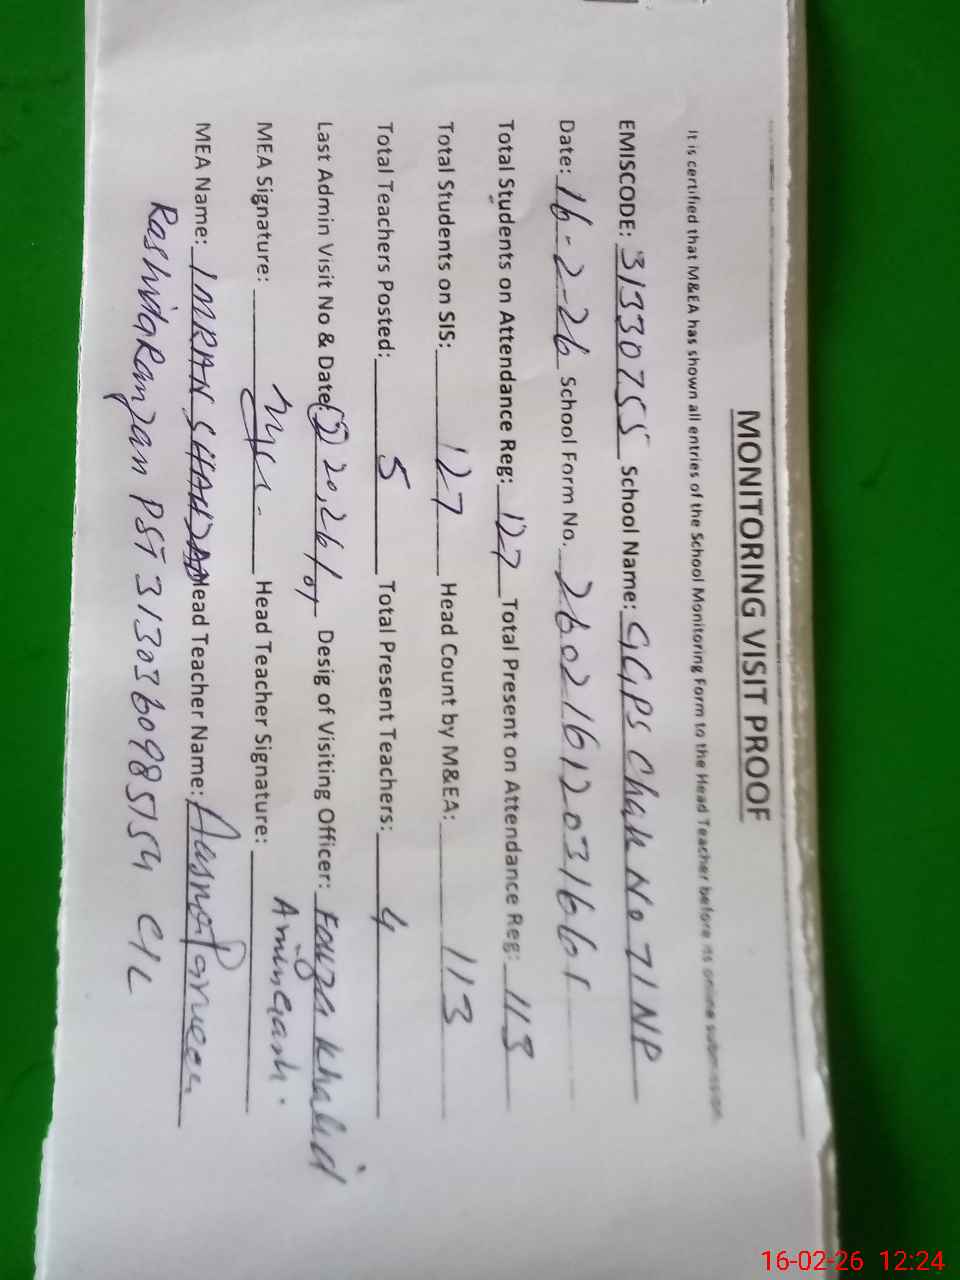 MONITORING VISIT PROOF
It is certified that M&EA has shown all entries of the School Monitoring Form to the Head Teacher before its online submission.
EMISCODE: 31330755 School Name: GGPS Chak No 71NP
Date: 16-2-26 School Form No. 260216120316661
Total Students on Attendance Reg: 127 Total Present on Attendance Reg: 113
Total Students on SIS: 127 Head Count by M&EA: 113
Total Teachers Posted: 5 Total Present Teachers: 4
Last Admin Visit No & Date: Desig of Visiting Officer: Fouzia Khalid
MEA Signature: Head Teacher Signature:
MEA Name: IMRAN SHAHZAD Head Teacher Name: Parveen
Rashida Ramzan PST 3130360985154 C/L
16-02-26 12:24